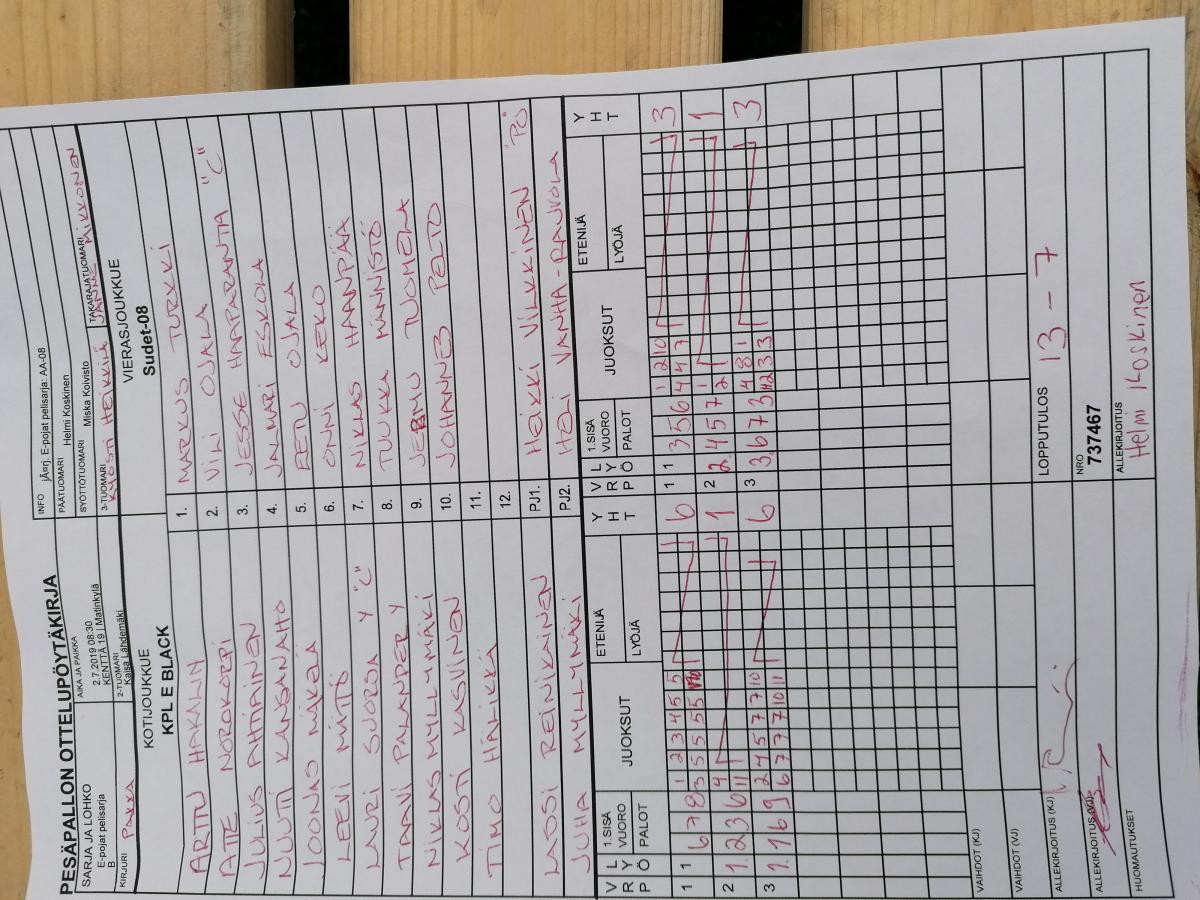 PESÄPALLON OTTELUPÖYTÄKIRJA
SARJA JA LOHKO
E-pojat pelisarja
B
AIKA JA PAIKKA
2.7.2019 08:30
KENTTÄ 19 | Matinkylä
INFO jÄ¤rj. E-pojat pelisarja: AA-08
PÄÄTUOMARI Helmi Koskinen
SYÖTTÖTUOMARI Miska Koivisto
KIRJURI
2-TUOMARI
Kaisa Lähdemäki
3-TUOMARI
TAKARAJATUOMARI
JANNE MIKKONEN
KOTIJOUKKUE
KPL E BLACK
VIERASJOUKKUE
Sudet-08
ARTTU HAKALIN 1. MARKUS TURKKI
ATTE NOROKORPI 2. VILI OJALA "C"
JULIUS AHTIAINEN 3. JESSE HAAPARANTA "C"
NUUTTI KANGASNAHO 4. JALMARI ESKOLA
JOONAS MÄKELÄ 5. EETU OJALA
LEEVI 6. ONNI KEKO
LAURI SUORSA Y "C" 7. NIKLAS HAANPÄÄ
TAAVI PALANDER Y 8. TUUKKA MANNISTÖ
NIKLAS MYLLYMÄKI 9. TUOMELA
KOSTI KASVINEN 10. JOHANNES PELTO
TIMO 11.
12.
LASSI REINIKAINEN PJ1. HEIKKI VILKKINEN "PÖ"
JUHA MYLLYMÄKI PJ2. HELI VANHA-RAUKOLA
V R P L Y Ö 1.SISÄ VUORO PALOT JUOKSUT ETENIJÄ LYÖJÄ Y H T V R P L Y Ö 1.SISÄ VUORO PALOT JUOKSUT ETENIJÄ LYÖJÄ Y H T
1 1 6 7 8 1 2 3 4 5 5 6 1 1 3 5 6 1 2 10 3
3 5 5 5 5 4 4 7
2 1. 2 3 6 4 1 2 2. 4 5 7 1 1
11 2
3 7. 1 6 9 2 4 5 7 7 10 6 3 3. 6 7 3 4 8 1 3
6 7 7 7 10 11 2 3 3
VAIHDOT (KJ)
VAIHDOT (VJ)
ALLEKIRJOITUS (KJ)
LOPPUTULOS 13 - 7
ALLEKIRJOITUS (VJ)
NRO
737467
HUOMAUTUKSET
ALLEKIRJOITUS
Helmi Koskinen